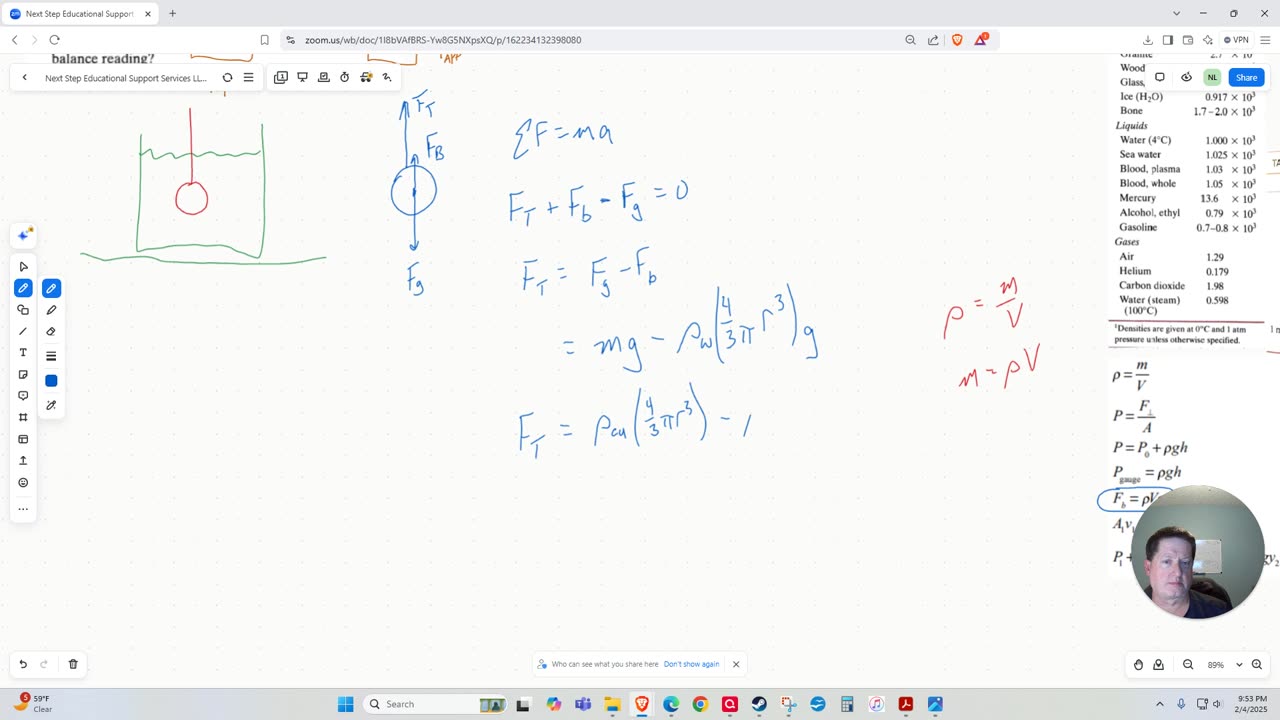 Next Step Educational Support
zoom.us/wb/doc/1I8bVAfBRS-Yw8G5NXpsXQ/p/162234132398080
VPN
balance reading?
APP
Next Step Educational Support Services LL...
NL
Share
F_T
F_B
F_g
ΣF = ma
F_T + F_b - F_g = 0
F_T = F_g - F_b
= mg - ρ_w(4/3 π r³)g
F_T = ρ_cu(4/3 π r³) -
ρ = m/V
m = ρV
Wood
Glass,
Ice (H₂O) 0.917 × 10³
Bone 1.7–2.0 × 10³
Liquids
Water (4°C) 1.000 × 10³
Sea water 1.025 × 10³
Blood, plasma 1.03 × 10³
Blood, whole 1.05 × 10³
Mercury 13.6 × 10³
Alcohol, ethyl 0.79 × 10³
Gasoline 0.7–0.8 × 10³
Gases
Air 1.29
Helium 0.179
Carbon dioxide 1.98
Water (steam) 0.598
(100°C)
¹Densities are given at 0°C and 1 atm
pressure unless otherwise specified.
ρ = m/V
P = F⊥/A
P = P₀ + ρgh
P_gauge = ρgh
F_b = ρV
A₁v₁
P₁ +
gy₂
Who can see what you share here Don't show again
89%
59°F
Clear
Search
9:53 PM
2/4/2025